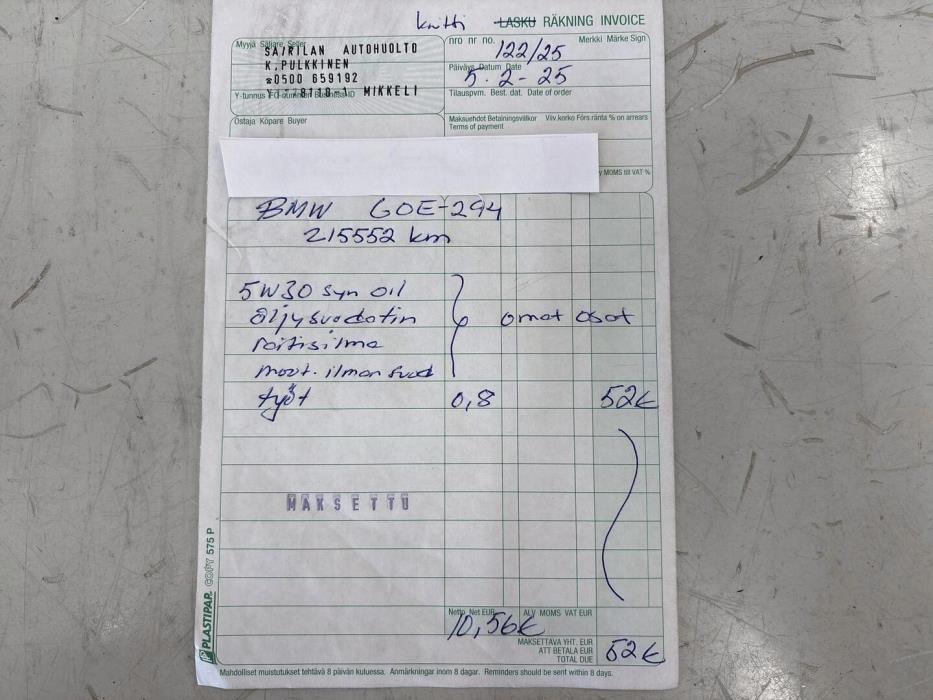 kuitti
LASKU RÄKNING INVOICE
Myyjä Säljare Seller
SAIRILAN AUTOHUOLTO
K.PULKKINEN
☎0500 659192
Y-tunnus FO-nummer Business ID
8118-1 MIKKELI
nro nr no. 122/25
Merkki Märke Sign
Päiväys Datum Date
5.2-25
Tilauspvm. Best. dat. Date of order
Ostaja Köpare Buyer
Maksuehdot Betalningsvillkor Viiv.korko Förs.ränta % on arrears
Terms of payment
MOMS till VAT %
BMW GOE-294
215552 km
5W30 syn oil
öljysuodatin omat osat
raitisilma
moot. ilman suod
työt 0,8 52€
MAKSETTU
Netto Net EUR ALV MOMS VAT EUR
10,56€
MAKSETTAVA YHT. EUR
ATT BETALA EUR
TOTAL DUE
52€
PLASTIPAP. COPY 575 P
Mahdolliset muistutukset tehtävä 8 päivän kuluessa. Anmärkningar inom 8 dagar. Reminders should be sent within 8 days.